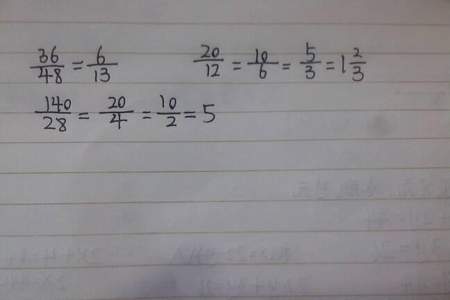 36/48 = 6/13 20/12 = 10/6 = 5/3 = 1 2/3
140/28 = 20/4 = 10/2 = 5